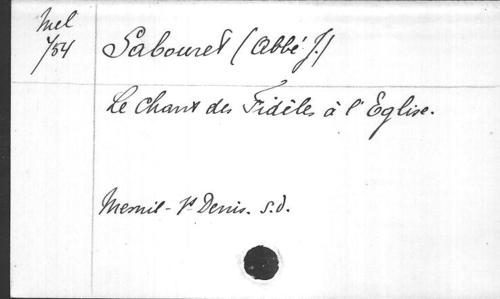 Mel
754
Sabouret (Abbé J.)
Le Chant des Fidèles à l'Eglise.
Mesnil-St Denis. s.d.